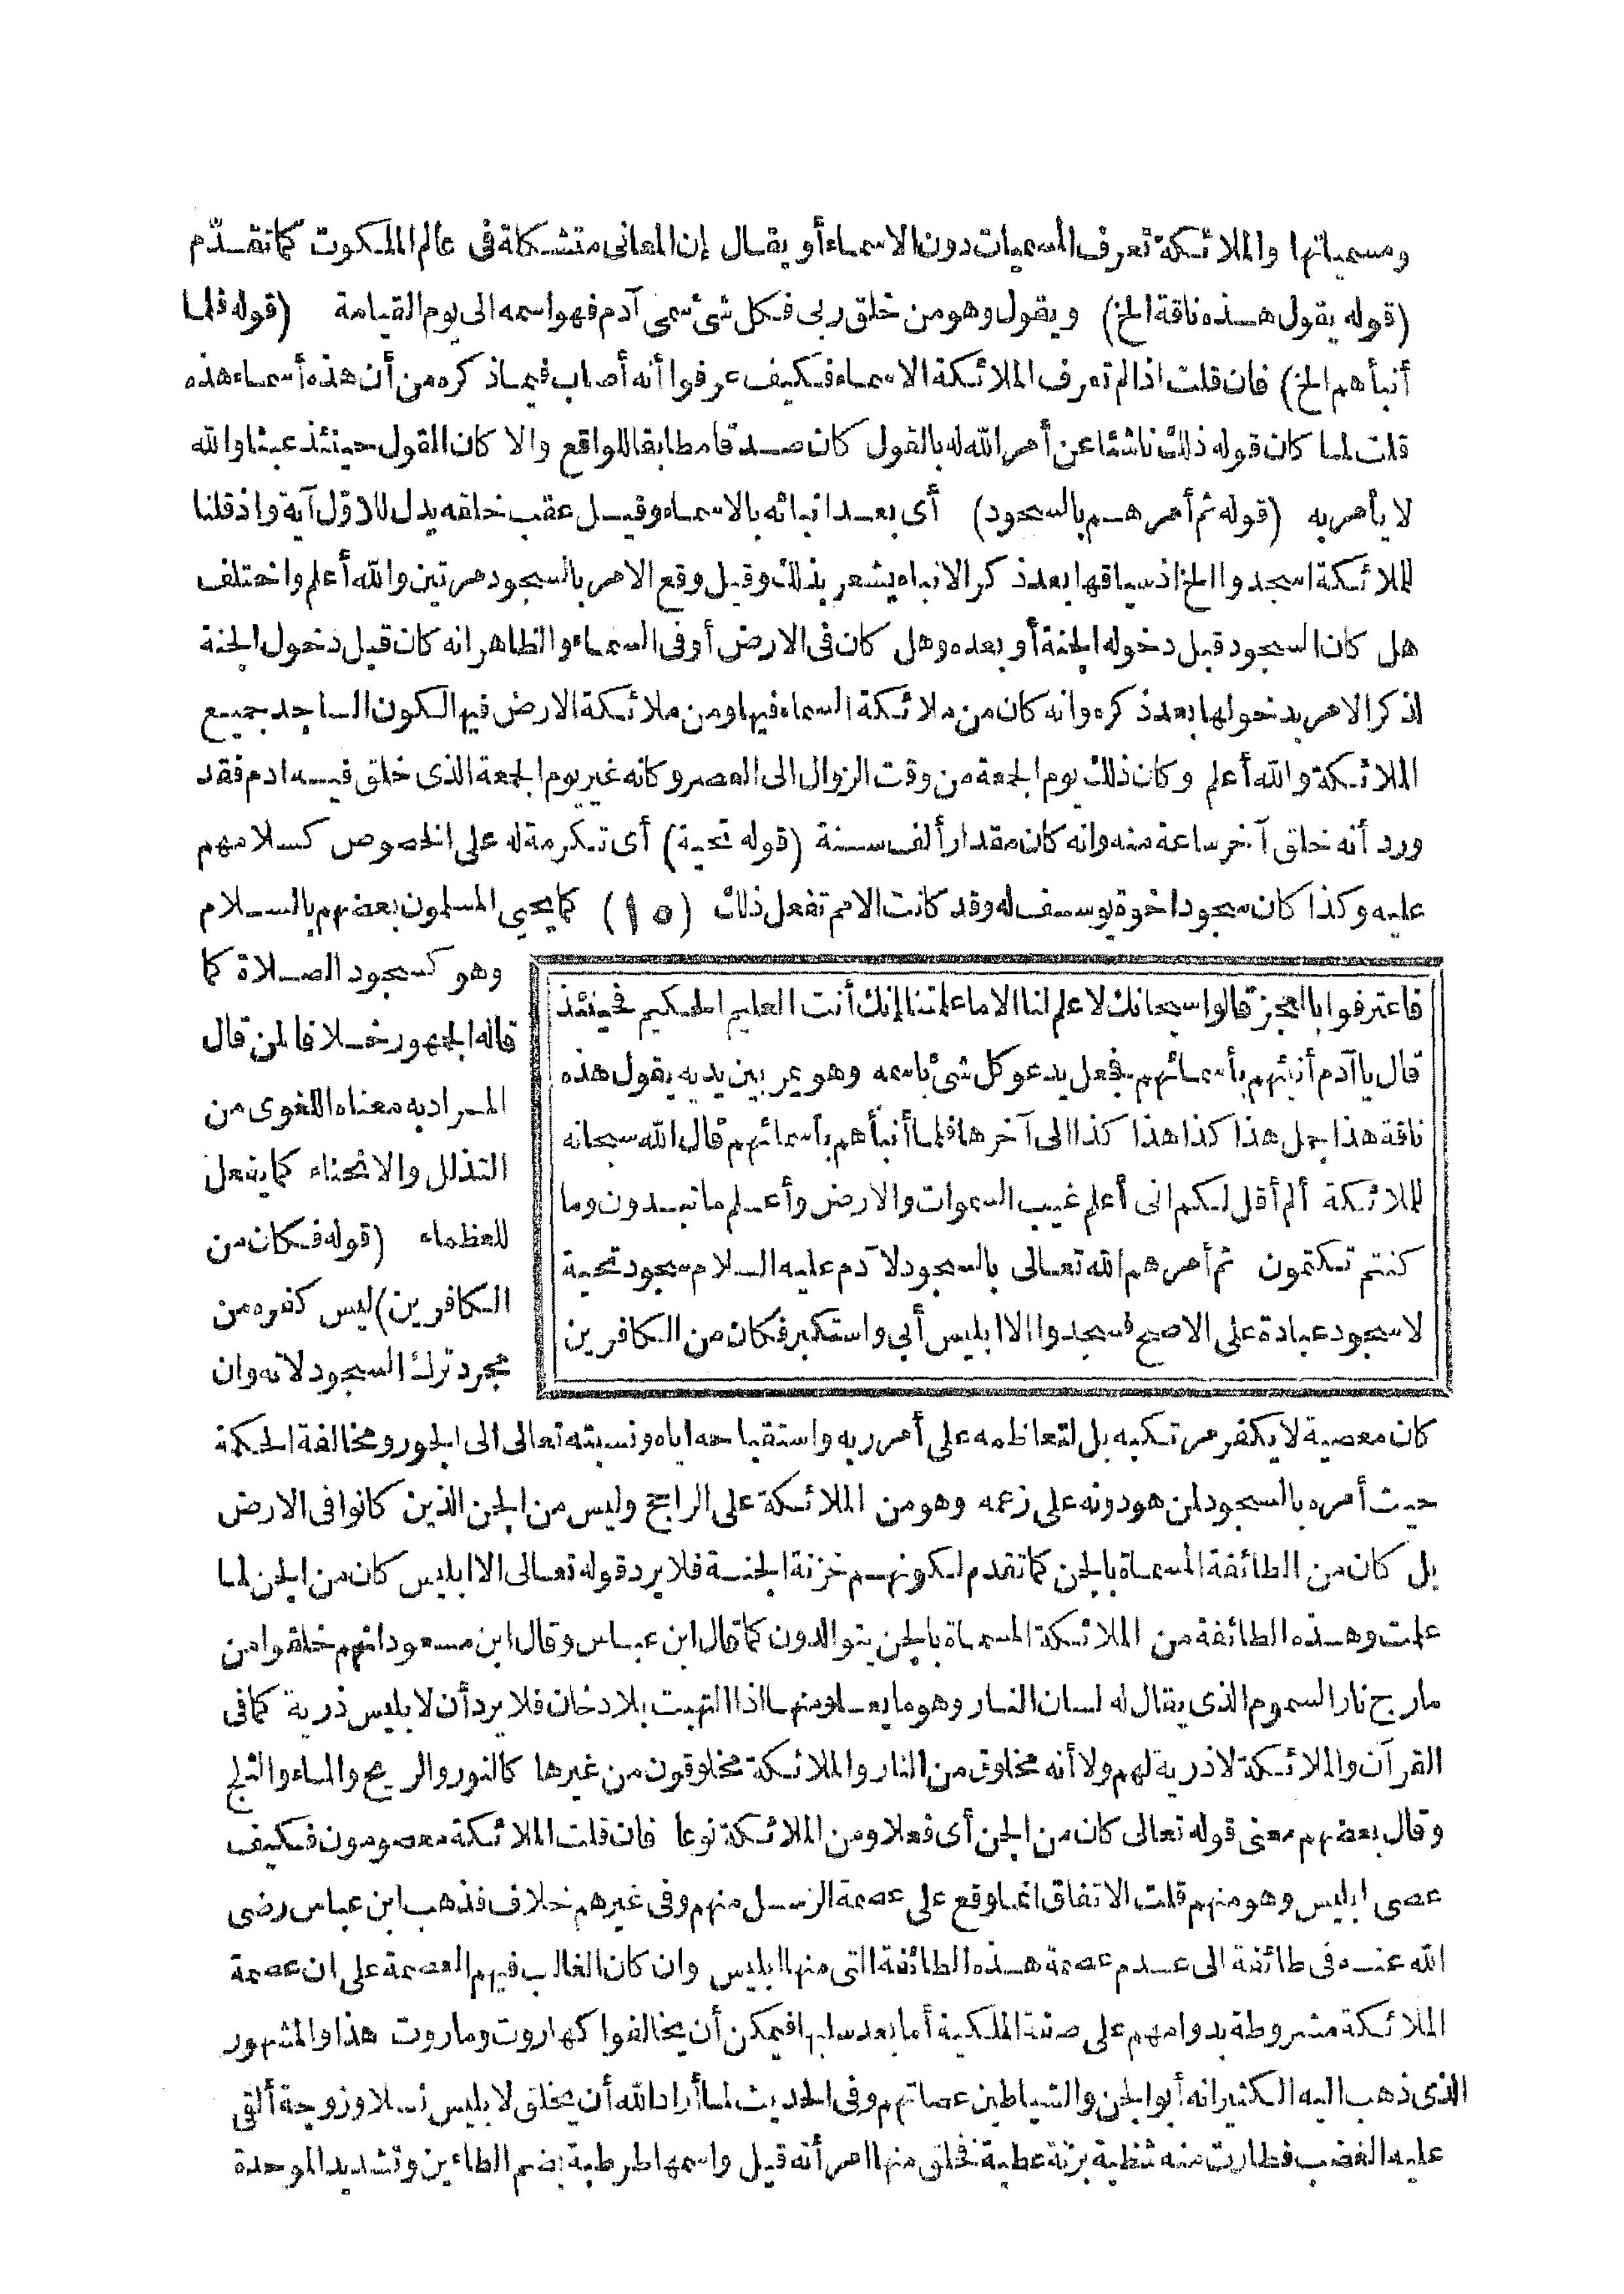 ومسمياتها والملائكة تعرف المسميات دون الاسماء أو يقال إن المعانى متشكلة فى عالم الملكوت كما تقدّم
(قوله يقول هذه ناقة الخ) ويقول وهو من خلق ربى فكل شئ سمى آدم فهو اسمه الى يوم القيامة (قوله فلما
أنبأهم الخ) فان قلت اذا لم تعرف الملائكة الاسماء فكيف عرفوا أنه أصاب فيما ذكره من أن هذه أسماء هذه
قلت لما كان قوله ذلك ناشئا عن أمر الله له بالقول كان صدقا مطابقا للواقع والا كان القول حينئذ عبثا والله
لا يأمر به (قوله ثم أمرهم بالسجود) أى بعد انبائه بالاسماء وقيل عقب خلقه يدل للاوّل آية واذ قلنا
للملائكة اسجدوا الخ اذ سياقها بعد ذكر الانباء يشعر بذلك وقيل وقع الامر بالسجود مرتين والله أعلم واختلف
هل كان السجود قبل دخوله الجنة أو بعده وهل كان فى الارض أو فى السماء والظاهر انه كان قبل دخول الجنة
اذ ذكر الامر بدخولها بعد ذكره وانه كان من ملائكة السماء فيها ومن ملائكة الارض فيها لكون الساجد جميع
الملائكة والله أعلم وكان ذلك يوم الجمعة من وقت الزوال الى العصر وكانه غير يوم الجمعة الذى خلق فيه ادم فقد
ورد أنه خلق آخر ساعة منه وانه كان مقدار ألف سنة (قوله تحية) أى تكرمة له على الخصوص كسلامهم
عليه وكذا كان سجود اخوة يوسف له وقد كانت الامم تفعل ذلك (١٥) كما يحيى المسلمون بعضهم بالسلام
وهو كسجود الصلاة كما
قاله الجمهور خلافا لمن قال
المراد به معناه اللغوى من
التذلل والانحناء كما يفعل
للعظماء (قوله فكان من
الكافرين) ليس كفره من
مجرد ترك السجود لانه وان
فاعترفوا بالعجز قالوا سبحانك لا علم لنا الا ما علمتنا إنك أنت العليم الحكيم فحينئذ
قال يا آدم أنبئهم بأسمائهم فجعل يدعو كل شئ باسمه وهو يمر بين يديه يقول هذه
ناقة هذا جمل هذا كذا هذا كذا الى آخرها فلما أنبأهم بأسمائهم قال الله سبحانه
للملائكة ألم أقل لكم انى أعلم غيب السموات والارض وأعلم ما تبدون وما
كنتم تكتمون ثم أمرهم الله تعالى بالسجود لآدم عليه السلام سجود تحية
لا سجود عبادة على الاصح فسجدوا الا ابليس أبى واستكبر فكان من الكافرين
كان معصية لا يكفر مرتكبه بل لتعاظمه على أمر ربه واستقباحه اياه ونسبته تعالى الى الجور ومخالفة الحكمة
حيث أمره بالسجود لمن هو دونه على زعمه وهو من الملائكة على الراجح وليس من الجن الذين كانوا فى الارض
بل كان من الطائفة المسماة بالجن كما تقدم لكونهم خزنة الجنة فلا يرد قوله تعالى الا ابليس كان من الجن لما
علمت وهذه الطائفة من الملائكة المسماة بالجن يتوالدون كما قال ابن عباس وقال ابن مسعود انهم خلقوا من
مارج نار السموم الذى يقال له لسان النار وهو ما يعلو منها اذا التهبت بلا دخان فلا يرد أن لابليس ذرية كما فى
القرآن والملائكة لا ذرية لهم ولا أنه مخلوق من النار والملائكة مخلوقون من غيرها كالنور والريح والماء والثلج
وقال بعضهم معنى قوله تعالى كان من الجن أى فعلا ومن الملائكة نوعا فان قلت الملائكة معصومون فكيف
عصى ابليس وهو منهم قلت الاتفاق انما وقع على عصمة الرسل منهم وفى غيرهم خلاف فذهب ابن عباس رضى
الله عنه فى طائفة الى عدم عصمة هذه الطائفة التى منها ابليس وان كان الغالب فيهم العصمة على ان عصمة
الملائكة مشروطة بدوامهم على صفة الملكية أما بعد سلبها فيمكن أن يخالفوا كهاروت وماروت هذا والمشهور
الذى ذهب اليه الكثير انه أبو الجن والشياطين عصاتهم وفى الحديث لما أراد الله أن يخلق لابليس نسلا وزوجة ألقى
عليه الغضب فطارت منه شظية بزنة عطية فخلق منها امرأته قيل واسمها طرطبة بضم الطاءين وتشديد الموحدة